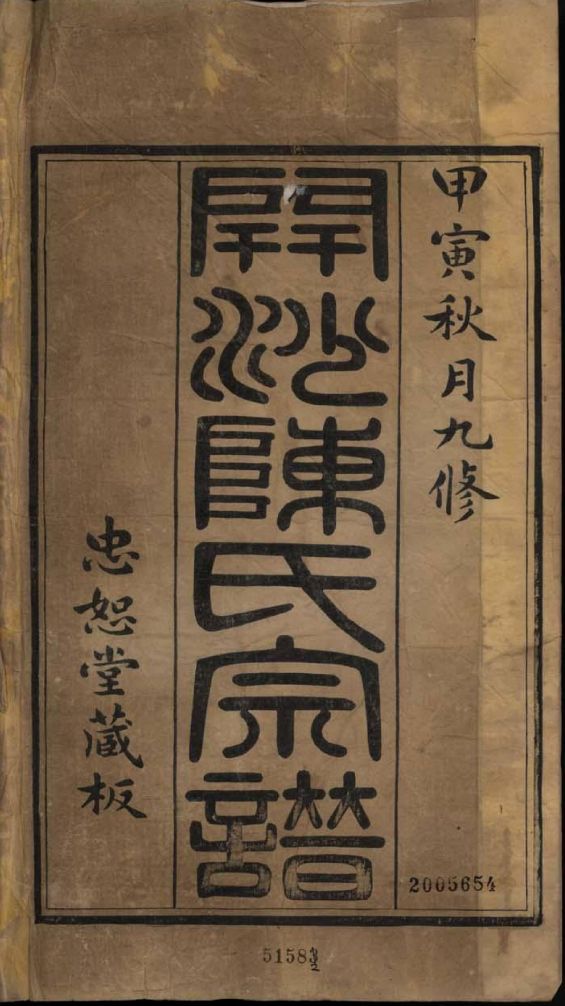 甲寅秋月九修
開沙陳氏宗譜
忠恕堂藏板
2005654
5158